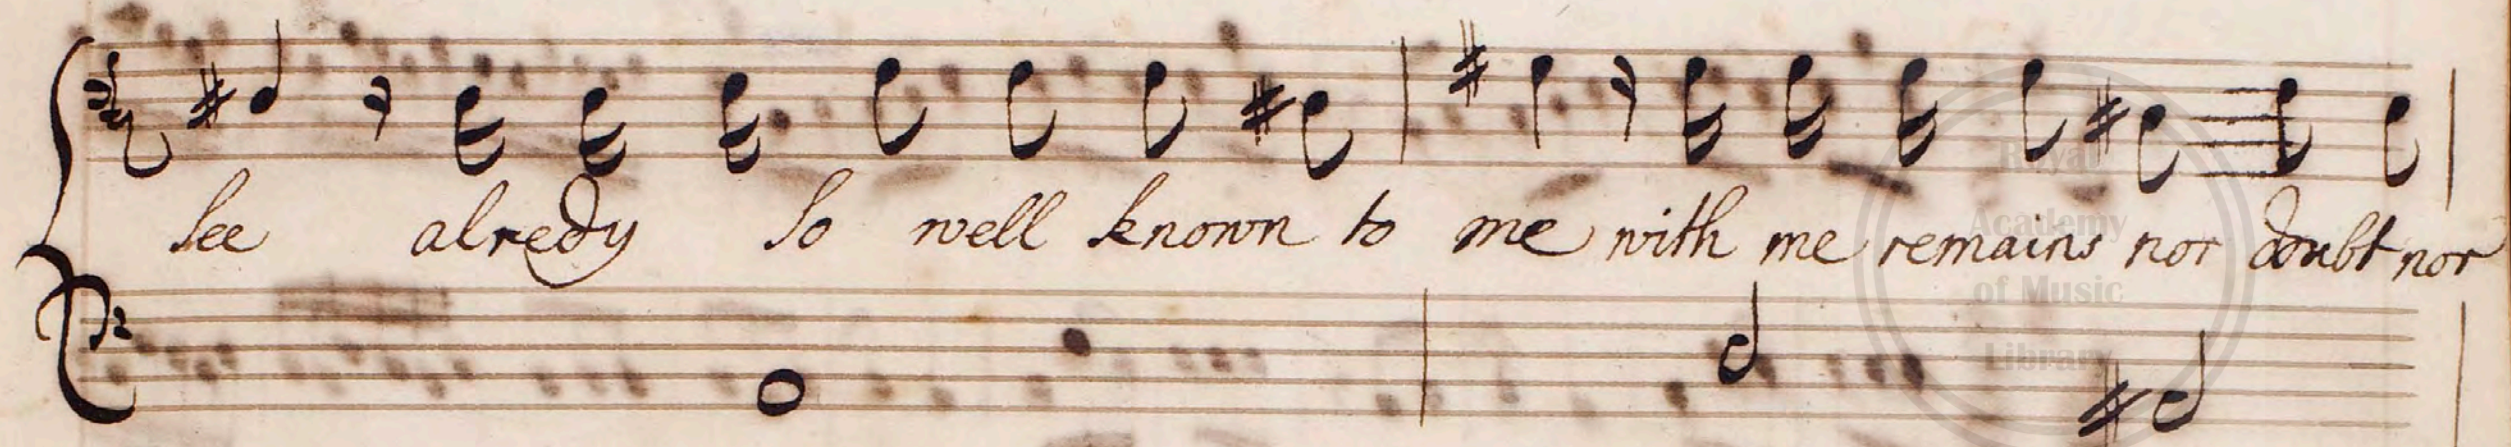 see alredy so well known to me with me remains nor doubt nor
Royal
Academy
of Music
Library